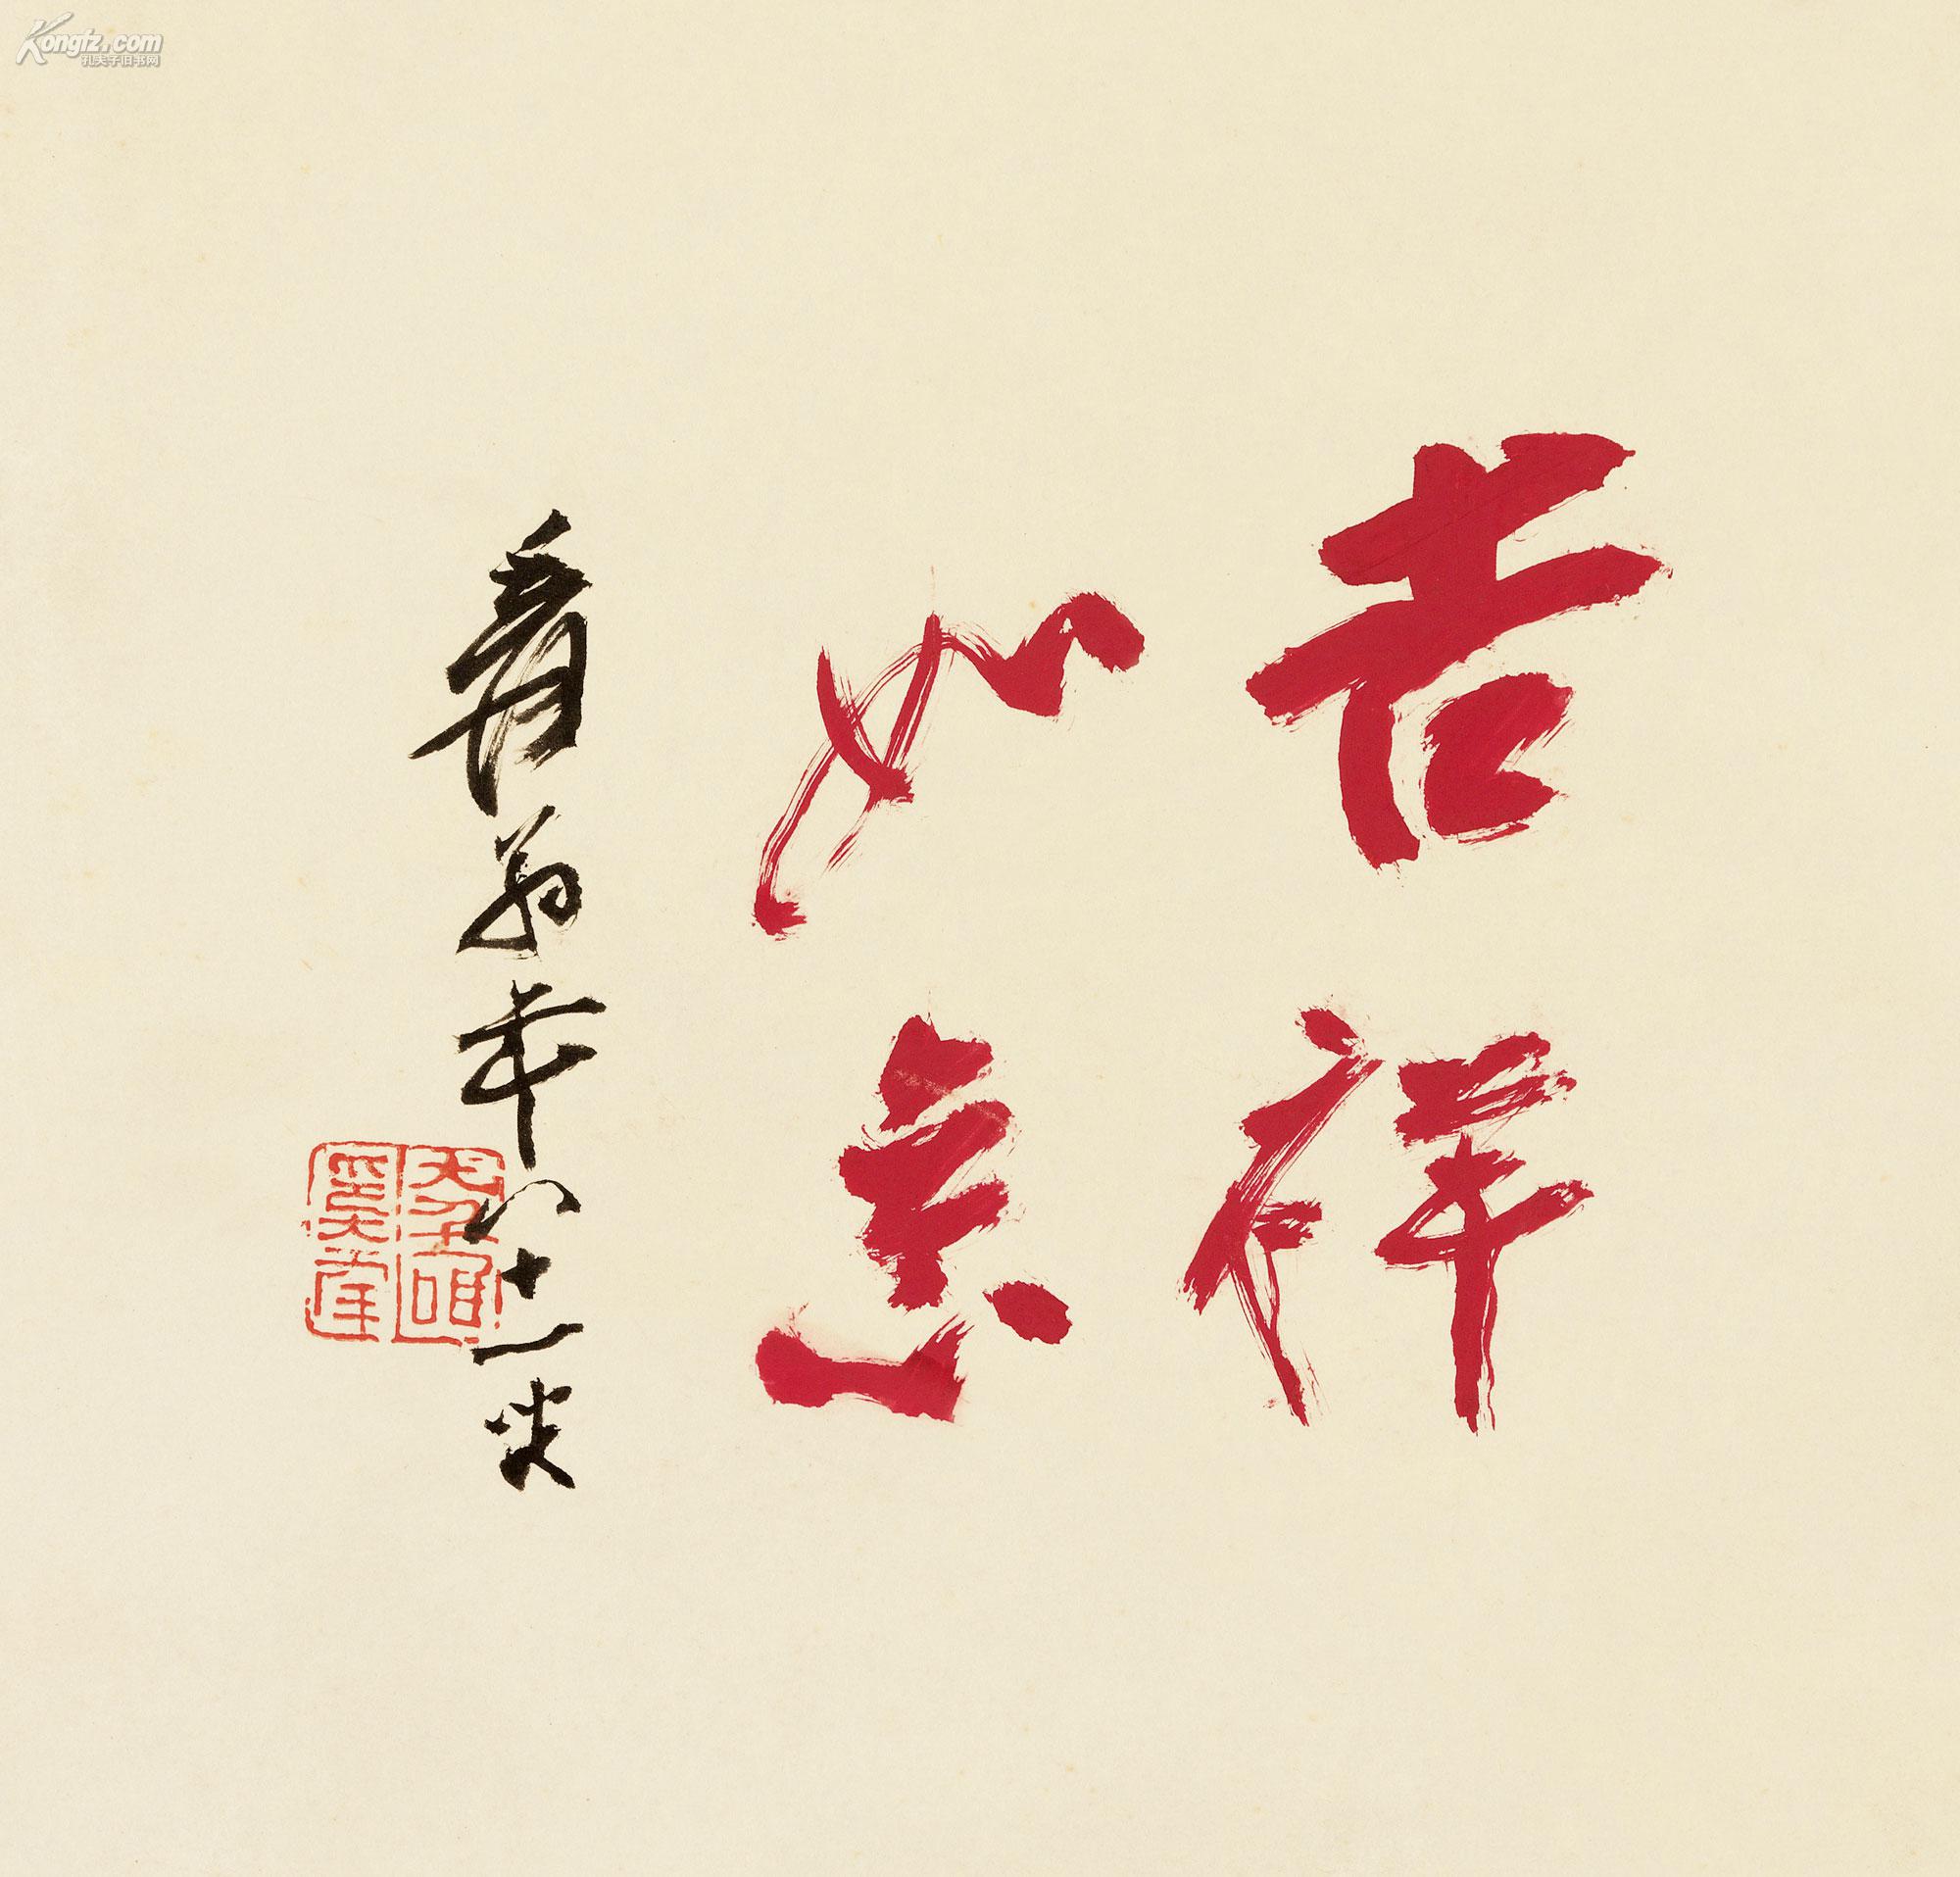 吉祥
如意
爰翁年八十一炎
Kongfz.com
孔夫子旧书网